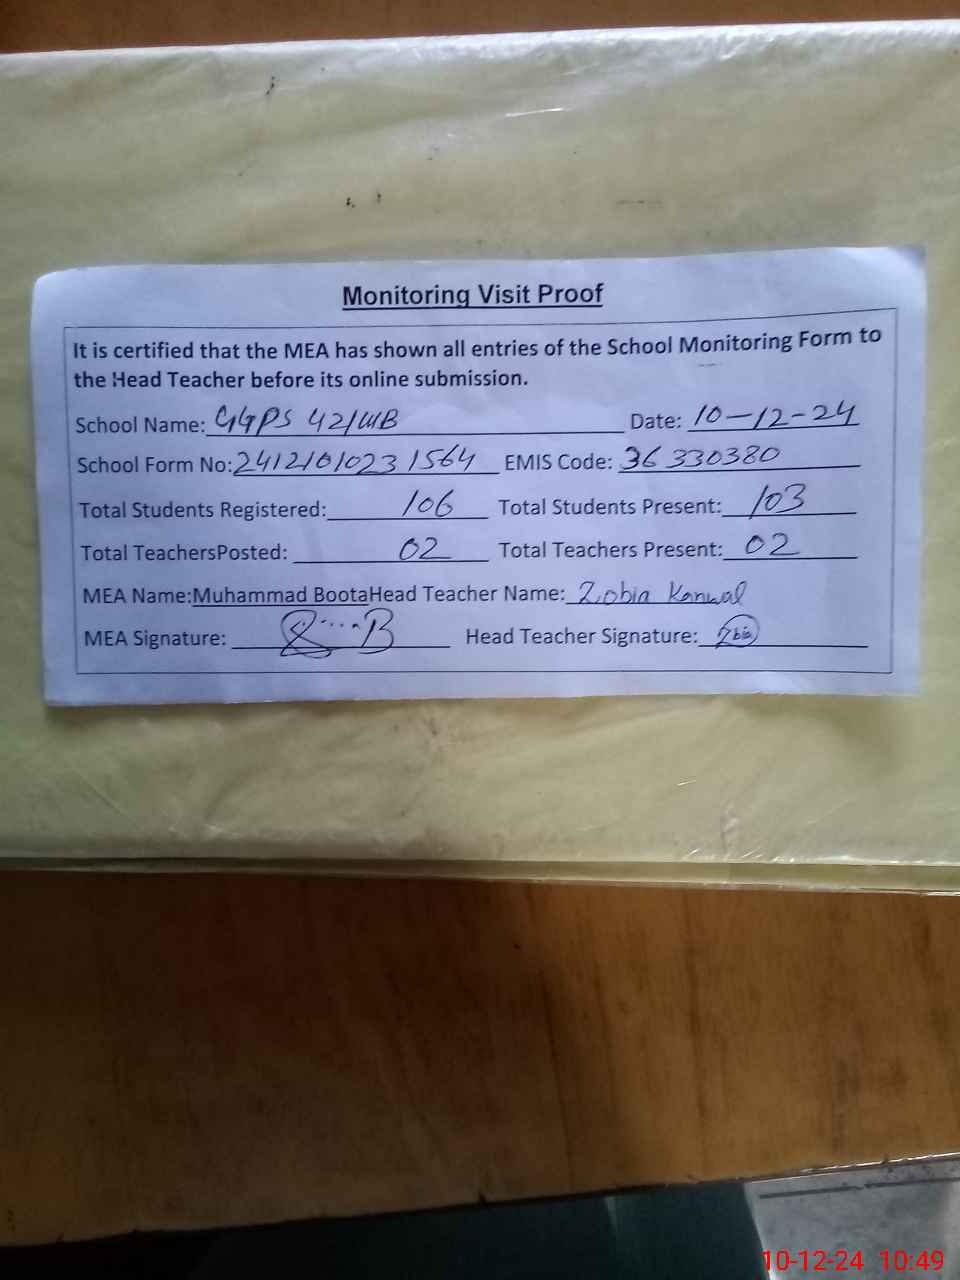 Monitoring Visit Proof
It is certified that the MEA has shown all entries of the School Monitoring Form to
the Head Teacher before its online submission.
School Name: GGPS 42/WB Date: 10-12-24
School Form No: 24121010231564 EMIS Code: 36330380
Total Students Registered: 106 Total Students Present: 103
Total TeachersPosted: 02 Total Teachers Present: 02
MEA Name:Muhammad BootaHead Teacher Name: Zobia Kanwal
MEA Signature: Head Teacher Signature:
10-12-24 10:49